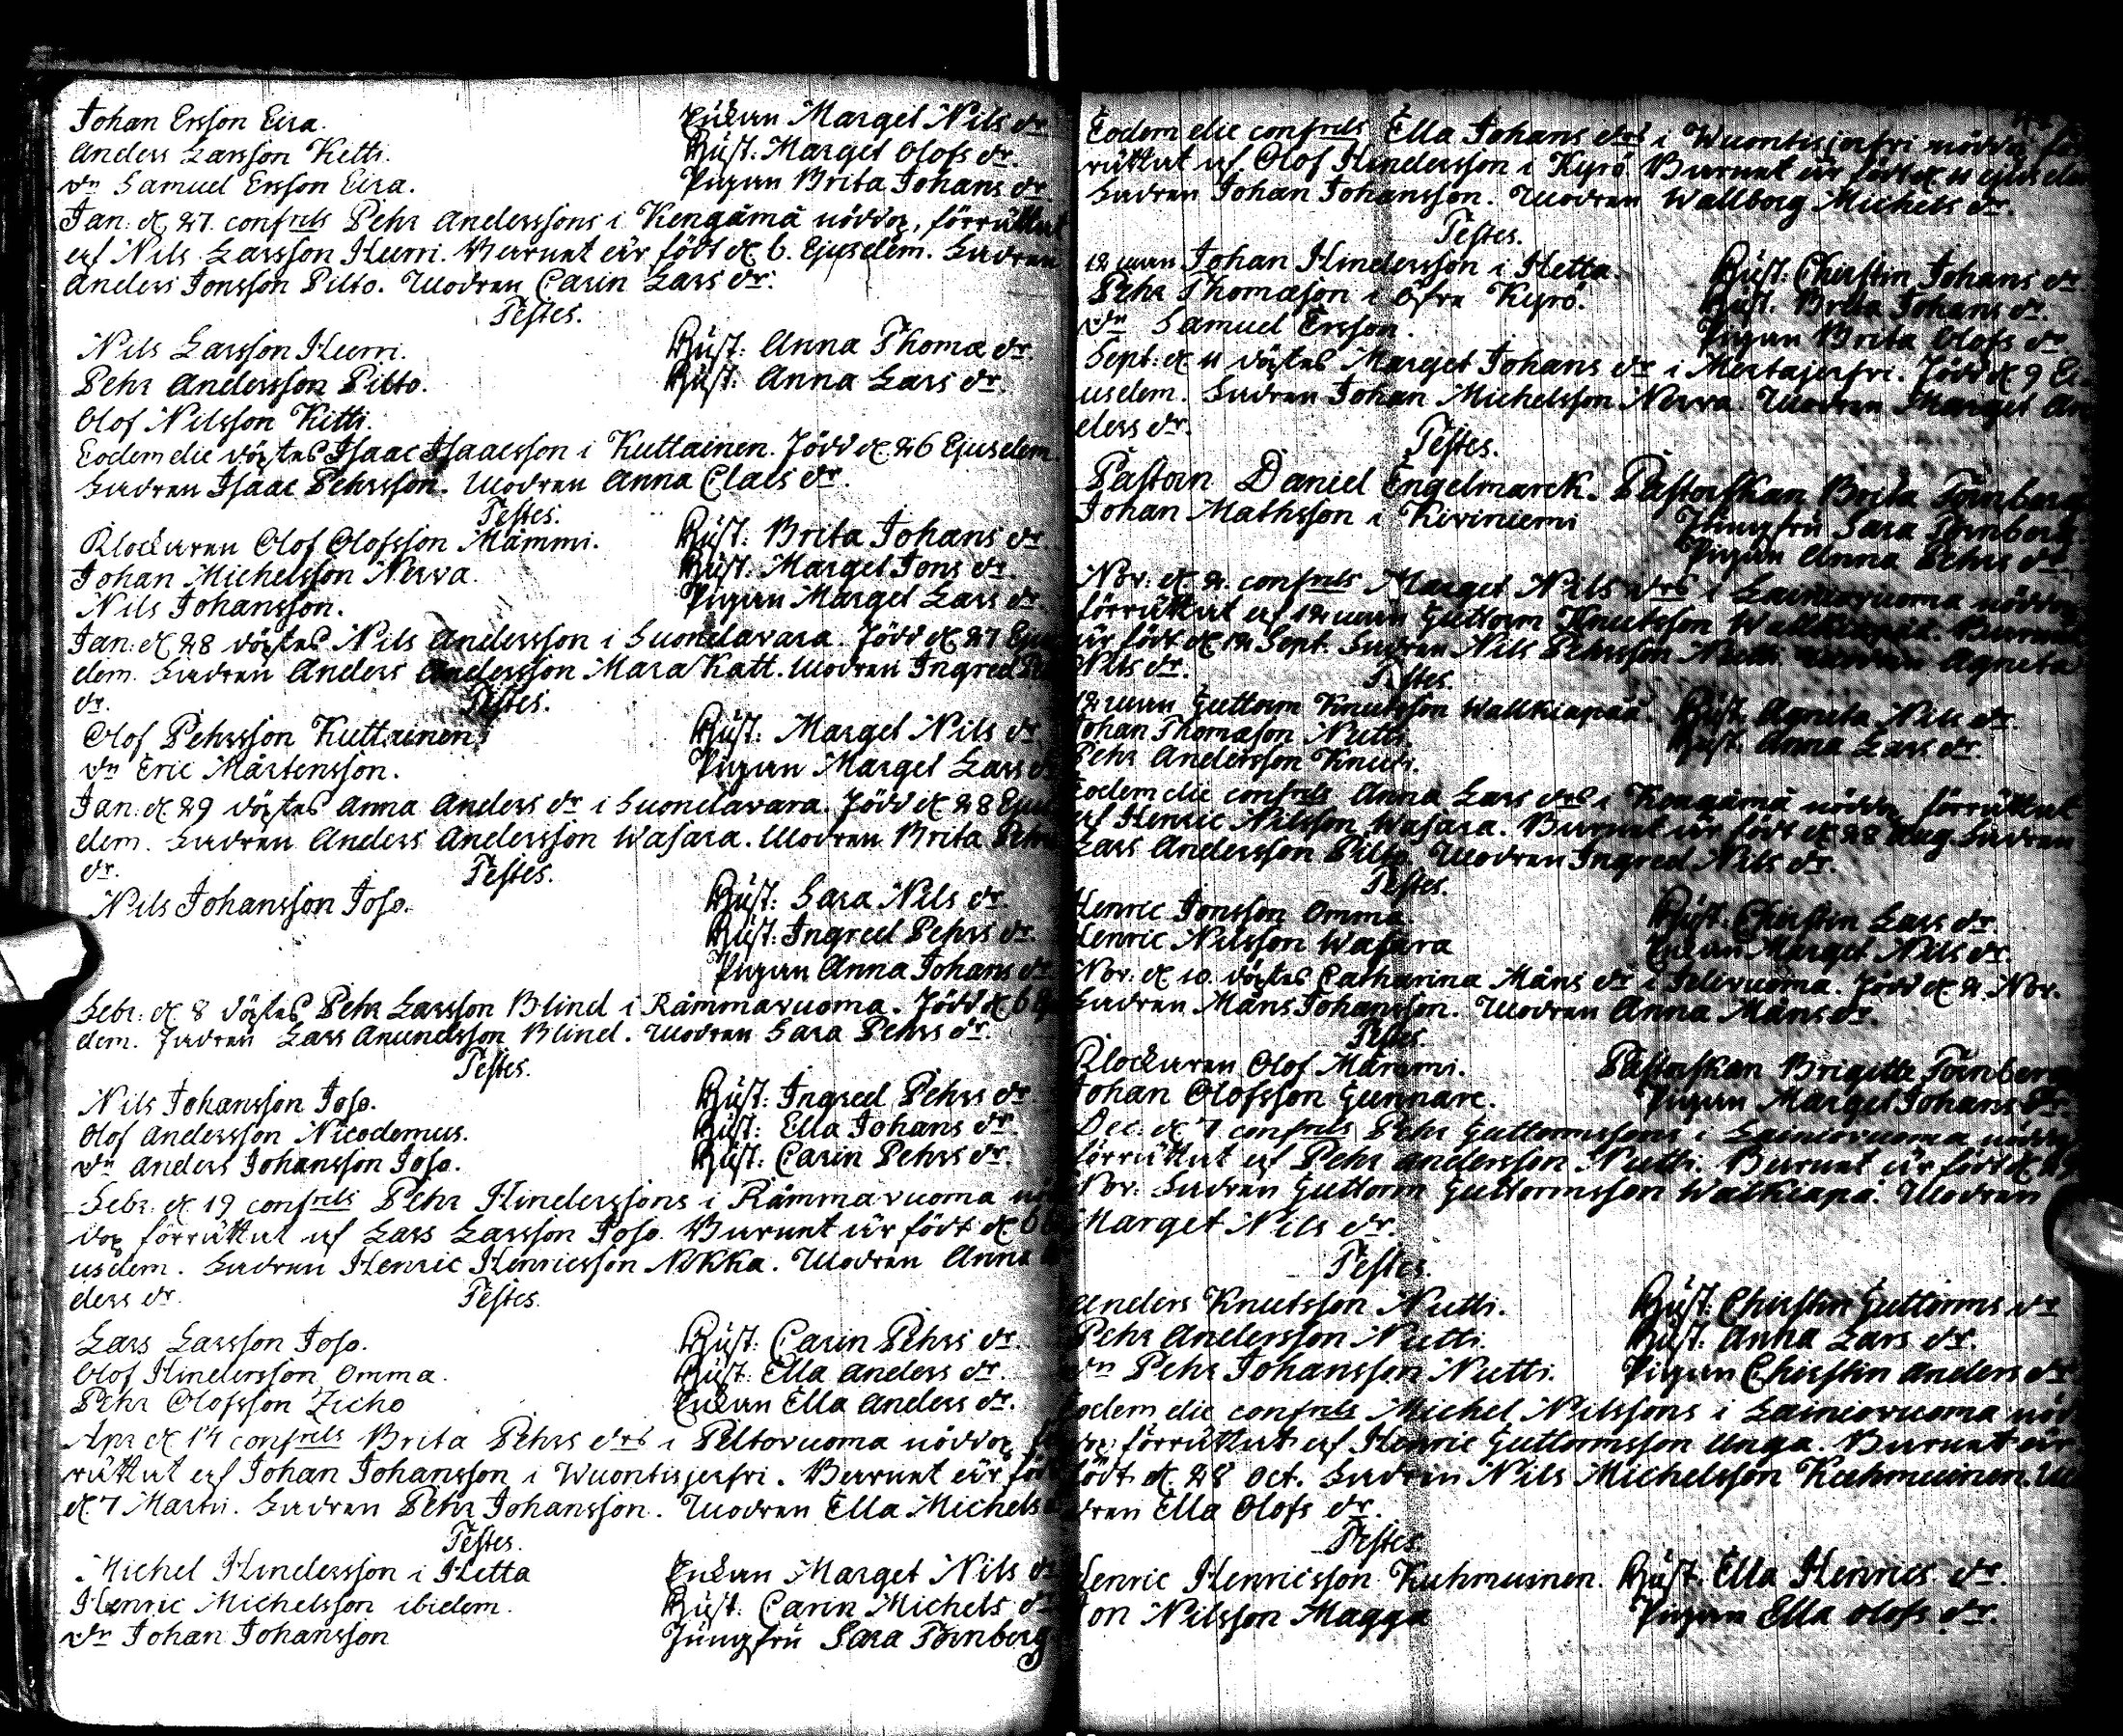 Johan Ersson Eira. Enkan Marget Nils dr
Anders Larsson Kitti. Hust: Marget Olofs dr.
dn Samuel Ersson Eira. Pigan Brita Johans dr
Jan: d. 27. confrels Pehr Anderssons i Kengämä nöddop, förrättat
af Nils Larsson Hurri. Barnet är födt d. 6. Ejusdem. Fadren
Anders Jonsson Pilto. Modren Carin Lars dr.
Testes.
Nils Larsson Hurri. Hust: Anna Thomæ dr.
Pehr Andersson Pilto. Hust: Anna Lars dr.
Olof Nilsson Kitti.
Eodem die döptes Isaac Isaacsson i Kuttainen. Född d. 26 Ejusdem.
Fadren Isaac Pehrsson. Modren Anna Claes dr.
Testes.
Klockaren Olof Olofsson Mämmi. Hust: Brita Johans dr.
Johan Michelsson Nerva. Hust: Marget Jons dr.
Nils Johansson. Pigan Marget Lars dr.
Jan: d. 28 döptes Nils Andersson i Suondavara. Född d. 27 Ejus
dem. Fadren Anders Andersson Mara Katt. Modren Ingred
dr. Testes.
Olof Pehrsson Kuttainen. Hust: Marget Nils dr
dn Eric Mårtensson. Pigan Marget Lars
Jan: d. 29 döptes Anna Anders dr i Suondavara. Född d. 28 Ejus
dem. Fadren Anders Andersson Wasara. Modren Brita Pehrs
dr. Testes.
Nils Johansson Joso. Hust: Sara Nils dr.
Hust: Ingred Pehrs dr.
Pigan Anna Johans dr
Febr: d. 8 döptes Pehr Larsson Blind i Råmmavuoma. Född d. 6
dem. Fadren Lars Anundsson Blind. Modren Sara Pehrs dr.
Testes.
Nils Johansson Joso. Hust: Ingred Pehrs dr
Olof Andersson Nicodemus. Hust: Ella Johans dr.
dn Anders Johansson Joso. Hust: Carin Pehrs dr.
Febr: d. 19 confrels Pehr Hinderssons i Råmmavuoma
dop förrättat af Lars Larsson Joso. Barnet är födt d. 6
usdem. Fadren Henric Henricsson Nikka. Modren Anna
ders dr. Testes.
Lars Larsson Joso. Hust: Carin Pehrs dr.
Olof Hindersson Omma. Hust: Ella Anders dr.
Pehr Olofsson Zicho Enkan Ella Anders dr.
Apr d. 14 confrels Brita Pehrs drs i Peltovuoma nöddop
rättat af Johan Johansson i Wuontisjerfvi. Barnet är född
d. 7 Martii. Fadren Pehr Johansson. Modren Ella Michels
Testes.
Michel Hindersson i Hetta Enkan Marget Nils dr
Henric Michelsson ibidem. Hust: Carin Michels dr
dn Johan Johansson Jungfru Sara Törnberg
Eodem die confrels Ella Johans drs i Wuontisjerfvi nöddop
rättat af Olof Hindersson i Kyrö Barnet är födt d. 11
Fadren Johan Johansson. Modren Wallborg Michels dr.
Testes.
12 man Johan Hindersson i Hetta. Hust: Chirstin Johans dr.
Pehr Thomæson i öfra Kyrö. Hust. Brita Johans dr.
dn Samuel Ersson. Pigan Brita Olofs dr
Sept: d. 11 döptes Marget Johans dr i Mertajerfvi. Född d. 9 Ej
usdem. Fadren Johan Michelsson Nerva. Modren Marget An
ders dr.
Testes.
Pastorn Daniel Engelmarck. Pastorskan Brita Törnberg
Johan Mathsson i Kiviniemi Jungfru Sara Törnberg
Pigan Anna Pehrs dr
Nov: d. 2. confrels Marget Nils drs i Lainiovuoma nöddop
förrättat af 12 man Guttorm Knutsson Barnet
är födt d. 12 Sept. Fadren Nils Pehrsson Nutti. Modren Agneta
Nils dr.
Testes.
12 man Guttorm Knutsson Walkiapää. Hust: Agneta Nils dr.
Johan Thomæson Nutti. Hust. Anna Lars dr.
Pehr Andersson Knuti.
Eodem die confrels Anna Lars drs i Kongämä nöddop förrättat
af Henric Nilsson Wasara. Barnet är födt d. 28 Aug. Fadren
Lars Andersson Pilto. Modren Ingred Nils dr.
Testes.
Henric Jonsson Omma Hust: Chirstin Lars dr.
Henric Nilsson Wasara Enkan Marget Nils dr.
Nov. d. 10. döptes Catharina Måns dr i Idivuoma. Född d. 2. Nov.
Fadren Måns Johansson. Modren Anna Måns dr.
Testes.
Klockaren Olof Mämmi. Pastorskan Brigitte Törnberg
Johan Olofsson Gunnare. Pigan Marget Johans dr
Dec: d. 7 confrels Pehr Guttormssons i Lainiovuoma nöddop
förrättat af Pehr Andersson Nutti. Barnet är födt d.
Nov: Fadren Guttorm Guttormsson Walkiapä. Modren
Marget Nils dr.
Testes.
Anders Knutsson Nutti. Hust: Chirstin Guttorms dr
Pehr Andersson Nutti. Hust. Anna Lars dr.
dn Pehr Johansson Nutti. Pigan Chirstin Anders dr
Eodem die confrels Michel Nilssons i Lainiovuoma nöd
dop förrättat af Henric Guttormsson Unga. Barnet är
födt d. 28 Oct. Fadren Nils Michelsson Kuhmuinen. Mo
dren Ella Olofs dr.
Testes.
Henric Henricsson Kuhmuinen. Hust: Ella Henrics dr.
Jon Nilsson Magga Pigan Ella Olofs dr.